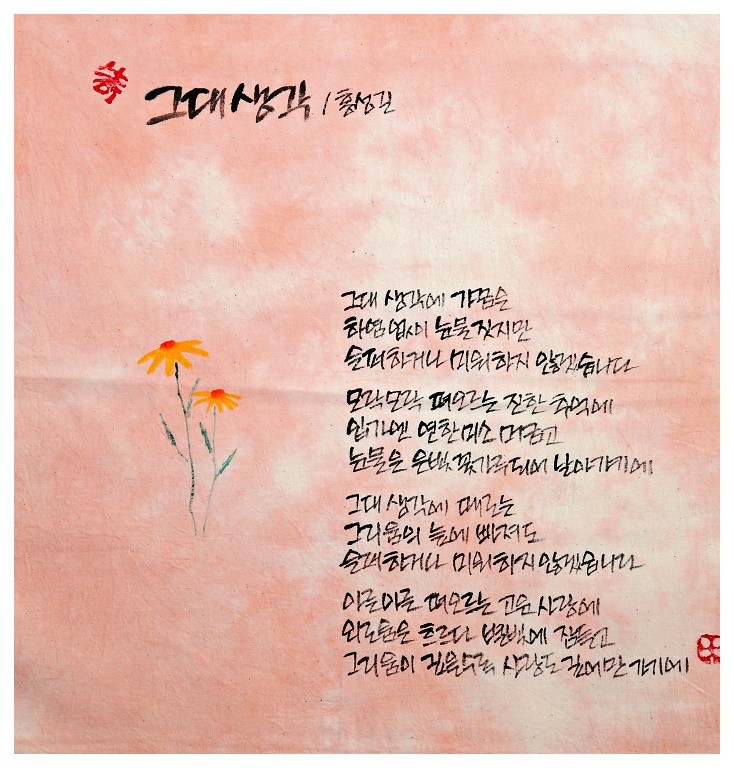 그대 생각 / 황성근
그대 생각에 가끔은
하염없이 눈물 짓지만
슬퍼하거나 미워하지 않겠습니다
모락모락 떠오르는 진한 추억에
입가엔 연한 미소 머금고
눈물은 은빛 꽃가루 되어 날아가기에
그대 생각에 때로는
그리움의 늪에 빠져도
슬퍼하거나 미워하지 않겠습니다
아른아른 떠오르는 고운 사랑에
외로움은 흐르다 별빛에 잠들고
그리움이 깊을수록 사랑도 깊어만 가기에